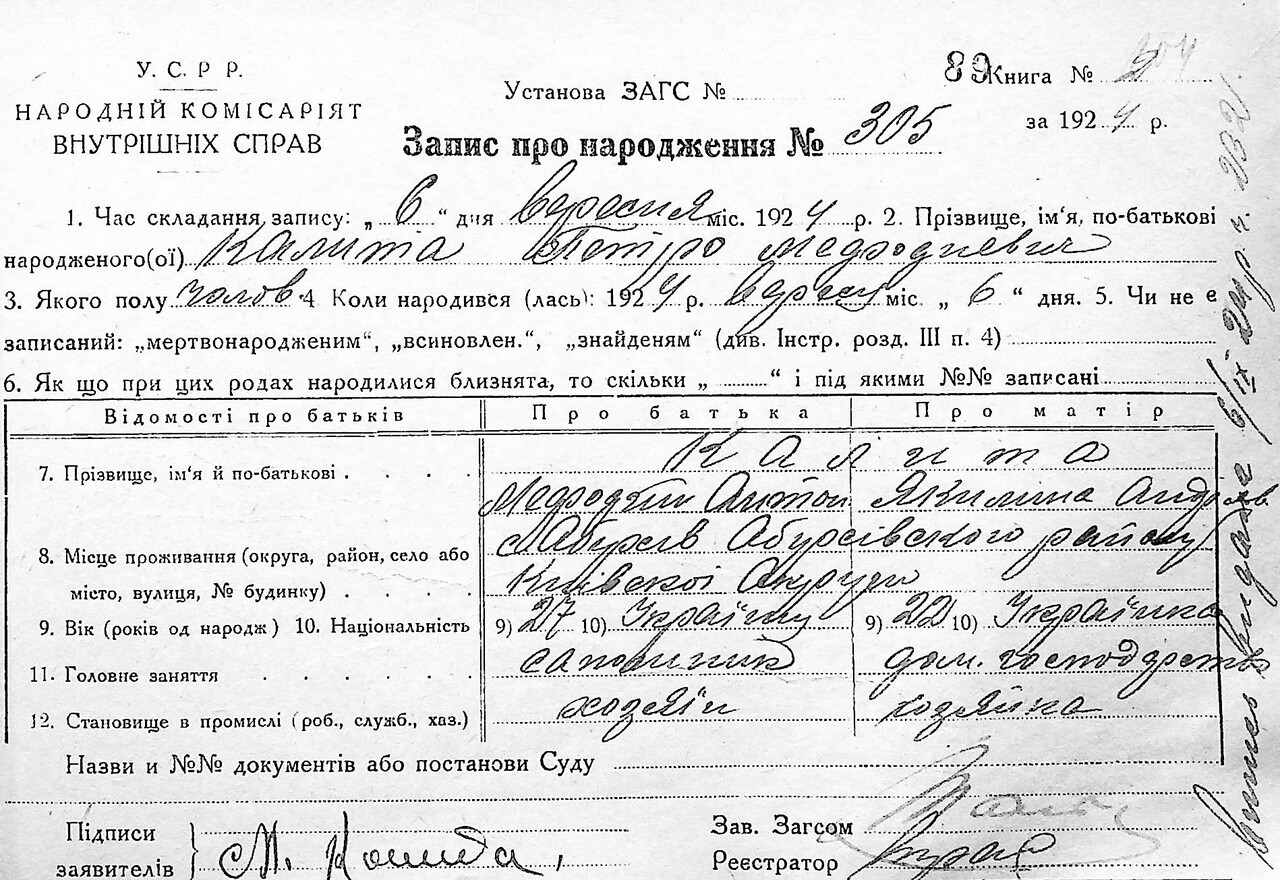 У. С. Р Р.
НАРОДНІЙ КОМІСАРІЯТ
ВНУТРІШНІХ СПРАВ
Установа ЗАГС №
89 Книга № 2
за 1924 р.
Запис про народження № 305
1. Час складання запису: „ 6 “ дня вересня міс. 1924 р. 2. Прізвище, ім'я, по-батькові
народженого(ої) Калита Петро Мефодиевич
3. Якого полу чолов. 4 Коли народився (лась): 1924 р. вересн міс. „ 6 “ дня. 5. Чи не є
записаний: „мертвонародженим“, „всиновлен.“, „знайденям“ (див. Інстр. розд. III п. 4)
6. Як що при цих родах народилися близнята, то скільки „ “ і під якими №№ записані
Відомості про батьків Про батька Про матір
7. Прізвище, ім'я й по-батькові Калита
Мефодий Антон Якилина Андріев
8. Місце проживання (округа, район, село або
місто, вулиця, № будинку)
району
Київскоі Округи
9. Вік (років од народж) 10. Національність 9) 27 10) Українц 9) 22 10) Українка
11. Головне заняття сапожник дом. господарство
12. Становище в промислі (роб., служб., хаз.) хозяїн хозяйка
Назви и №№ документів або постанови Суду
Підписи
заявителів М. Калита
Зав. Загсом
Реєстратор